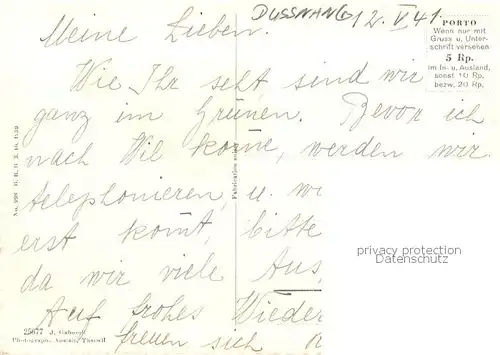 DUSSNANG 12. V 41.
PORTO
Wenn nur mit
Gruss u. Unter-
schrift versehen
5 Rp.
im In- u. Ausland,
sonst 10 Rp.
bezw. 20 Rp.
Meine Lieben.
Wie Ihr seht sind wir
ganz im Grünen. Bevor ich
nach Wil kome, werden wir
telephonieren, u. we
erst komt, bitte
da wir viele Aus
Auf frohes Wieder
freuen sich
privacy protection
Datenschutz
25677 J. Gaberell
Photograph. Anstalt, Thalwil